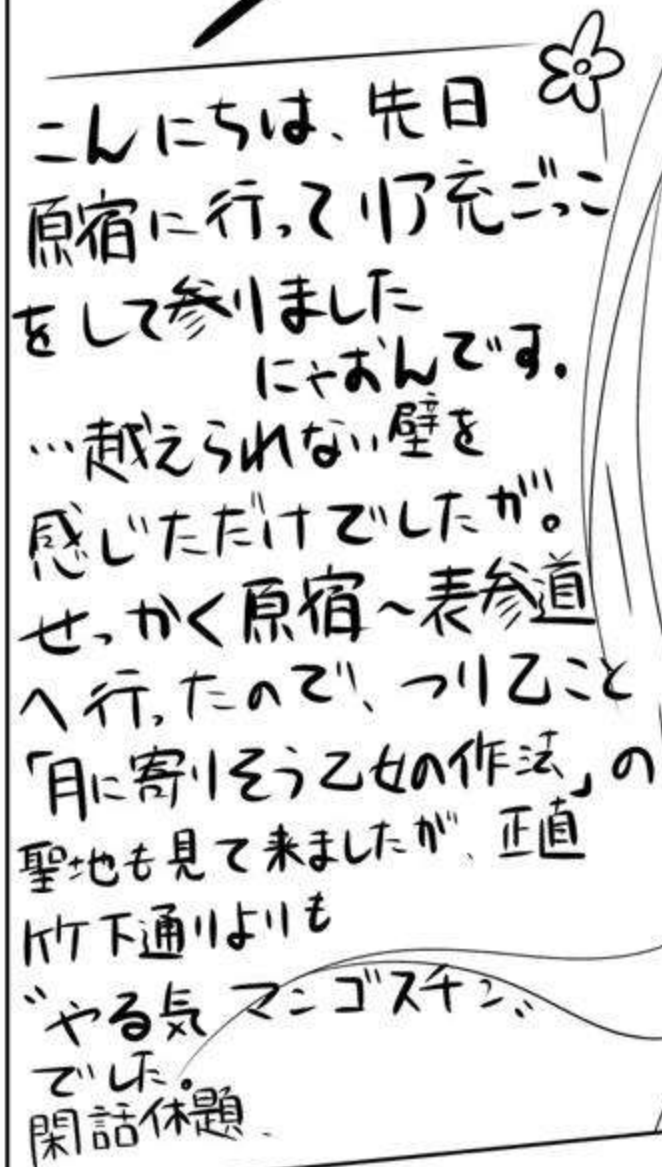 こんにちは、先日
原宿に行ってリア充ごっこ
をして参りました
にゃおんです。
…越えられない壁を
感じただけでしたが。
せっかく原宿〜表参道
へ行ったので、つり乙こと
「月に寄りそう乙女の作法」の
聖地も見て来ましたが、正直
竹下通りよりも
〝やる気 マンゴスチン〟
でした。
閑話休題、